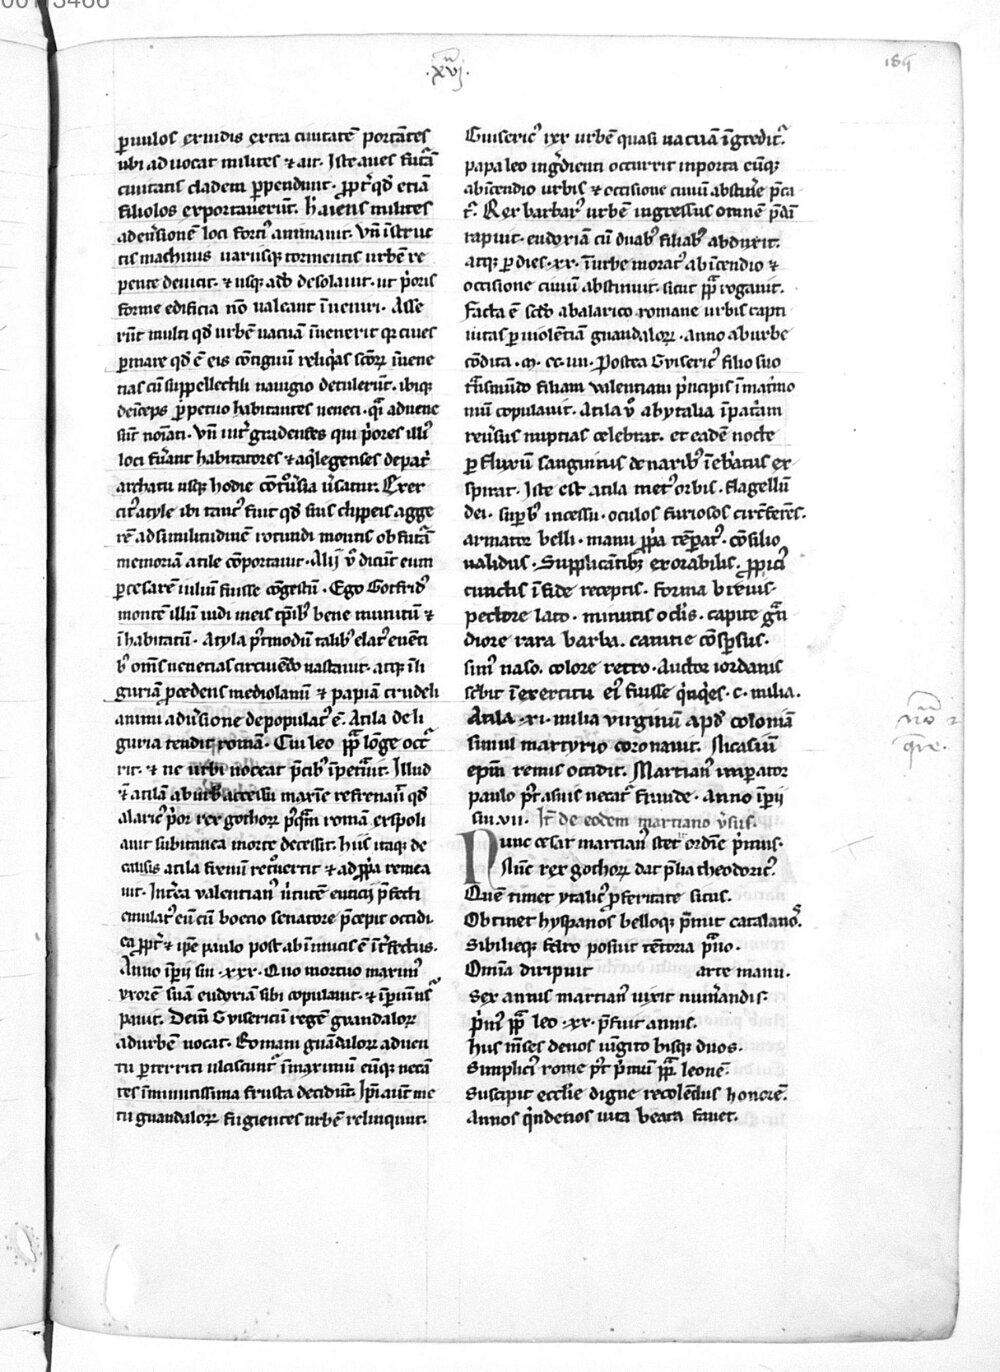 .xvi.
184
paruulos ex nidis extra ciuitatē portātes
ubi aduocat milites ⁊ ait. Iste aues futurā
ciuitatis cladem ꝑpendunt. ꝓpt̓ qd̓ etiā
filiolos exportauerūt. h̓ aiens milites
ad eu̓sionē loci forti᷒ animauit. Vn̄ īstruc
tis machinis uariisq; tormentis urbē re
pente deuicit. ⁊ usq; adeo desolauit. ut p̓oris
forme edificia nō ualeant īueniri. Asse
rūt multi qd̓ urbē uacuā īuenerit qr ciues
ꝑ mare qd̓ ē eis cōtiguū reliq̓as scōꝝ īuene
tias cū suppellectili nauigio detulerūt. ibiq;
deīceps ꝑpetuo habitantes ueneti. q̓ȧ aduene
sūt noīati. Vn̄ int̓ gradenses qui p̓ores illi᷒
loci fu̓ant habitatores ⁊ aq̓legenses de pat̓
archatu usq; hodie cōtrou̓sia u̓satur. Exer
cit᷒ atyle ibi tant᷒ fuit qd̓ suis clippeis agge
rē ad similitudinē rotundi montis ob futurā
memoriā atile cōportauit. Alij v̓ dicūt eum
ꝑ cesarē iuliū fuisse cōgestū. Ego Gotfrid᷒
montē illū uidi meis tp̄ib᷒ bene munitū ⁊
īhabitatū. Atyla p̓t̓modū talib᷒ elat᷒ euēti
b᷒ oms̄ uenetias circuiēdo uastauit. atq; ī li
guriā ꝓcedens mediolanū ⁊ papiā crudeli
animi adu̓sione depopulat᷒ ē. Atila de li
guria tendit romā. Cui leo pp̄ȧ lōge occ̓r
rit. ⁊ ne urbi noceat p̓cib᷒ īpet̓uit. Illud
⁊̄ atilā ab urb̓ accessu maxīe refrenauit qd̓
alaric᷒ p̓or rex gothoꝝ p̓q̓m romā expoli
auit subitanea morte decessit. hiis itaq; de
causis atila ferrū retrou̓tit ⁊ ad ꝓp̓a remea
uit. Int̓ea ualentian᷒ u̓tutē euticij p̓fecti
emulat᷒ eū cū boecio senatore p̓cepit occidi.
ea ꝓpt̓ ⁊ ip̄e paulo post ab inimicis ē īt̓fectus.
Anno īp̓ii sui .xxx. Quo mortuo maxim᷒
vxorē suā eudoxiā sibi copulauit. ⁊ īp̓ium us᷒
pauit. Deīn Gysericū regē guandaloꝝ
ad urbē uocat. Romani guādaloꝝ aduen
tu ꝑterriti ulciscunt᷒ ī maximū eūq; necā
tes ī minutissima frusta decidūt. Ip̄i aūt me
tu guandaloꝝ fugientes urbē relinquūt.
Guiseric᷒ rex urbē quasi uacuā īgredit᷒.
papa leo īgr̓dienti occurrit in porta eūq;
ab īcendio urbis ⁊ occisione ciuiū abstin̓e p̓ca
t᷒. Rex barbar᷒ urbē ingressus omnē p̓dā
rapuit. eudoxiā cū duab᷒ filiab᷒ abduxit.
atq; ꝑ dies .xx. ī urbe morat᷒ ab īcendio ⁊
occisione ciuiū abstinuit. sicut pp̄ȧ rogauit.
Facta ē scd̓o ab alarico romane urbis capti
uitas ꝑ uiolētiā guandaloꝝ. anno ab urbe
cōdita .M.CC.VII. Postea Gyseric᷒ filio suo
t̓asmūdo filiam ualentiani p̓ncipis ī mat̓mo
niū copulauit. Atila v̓ ab ytalia ī pat̓am
reu̓sus nuptias celebrat. et eadē nocte
ꝑ fluxū sanguinis de narib᷒ īeb̓atus ex
spirat. Iste est atila met᷒ orbis. flagellū
dei. sup̓b᷒ incessu. oculos furiosos circūferēs.
armator belli. manu ꝓp̓a tēꝑat᷒. cōsilio
ualidus. Supplicātib; exorabilis. ꝓpici᷒
cunctis ī fide receptis. forma breuis.
pectore lato. minutis oclis. capite grā
diore rara barba. canitie cōsꝑsus.
simo naso. colore tetro. Auctor iordanis
sc̓bit ī exercitu ei᷒ fuisse q̓nq̓es .c. milia.
Atila .xi. milia virginū apd̓ coloniā
simul martyrio coronauit. Nicasiū
ep̄m remis occidit. Martian᷒ imperator
paulo p̓t asuis necat᷒ fraude. Anno īp̓ii
sui .vii. It̄ de eodem martiano v̓sus.
Nunc cesar martian᷒ stet᷒ ordīe p̓mus.
Nūc rex gothoꝝ dat p̓lia theodoric᷒.
Quē timet ytalic᷒ p̓feritate situs.
Obtinet hyspanos belloq; p̓mit catalano᷒.
Sibilieq; foro posuit tētoria p̓mo.
Omīa diripuit arte manu.
Sex annis martian᷒ uixit num̓andis.
p̓m᷒ pp̄ȧ leo .xx. p̓fuit annis.
Hiis mēses denos iūgito bisq; duos.
Simplici᷒ rome p̓t p̓mū pp̄ȧ leonē.
Suscipit ecclīe digne recolēdus honorē.
Annos q̓ndenos uita beata fauet.